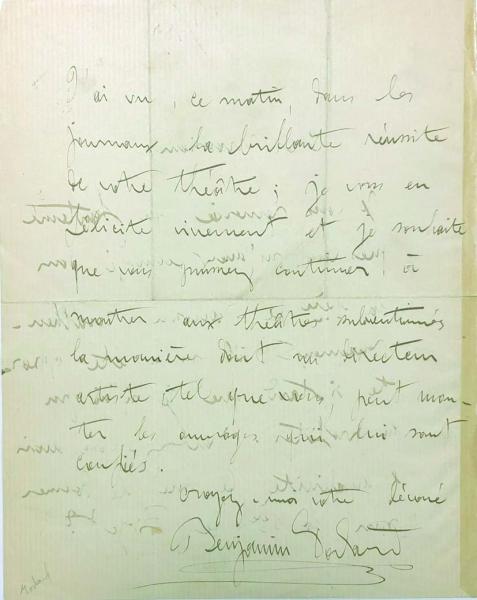 J'ai vu, ce matin, dans les
journaux la brillante réussite
de votre théâtre ; je vous en
félicite vivement et je souhaite
que vous puissiez continuer à
montrer aux théâtres subventionnés
la manière dont un directeur
artiste tel que vous, peut mon-
ter les ouvrages qui lui sont
confiés.
Croyez-moi votre dévoué
Benjamin Godard